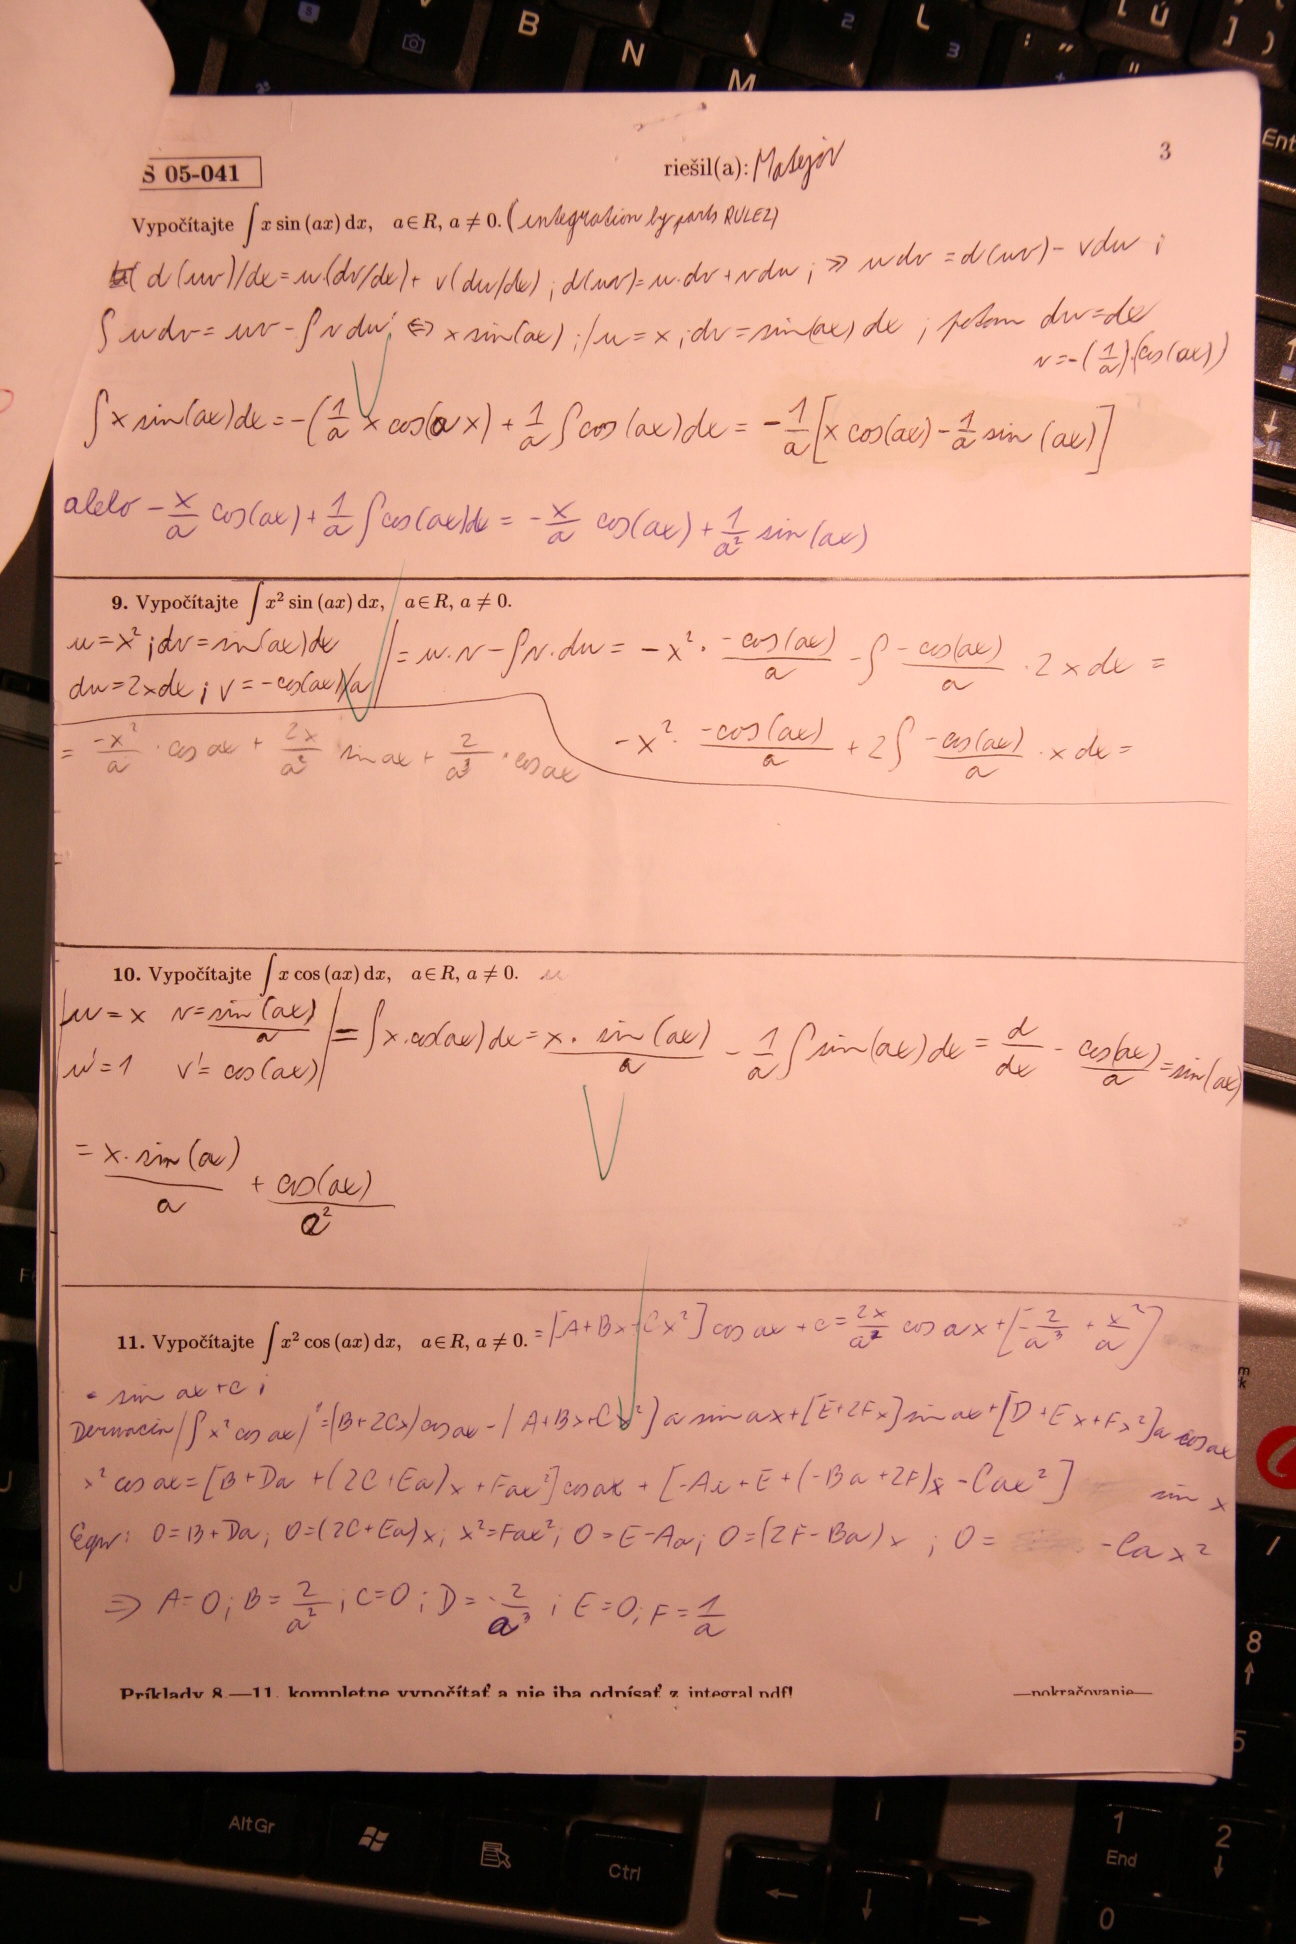 B N M L
Ent
S 05-041 riešil(a): Matejov 3
Vypočítajte ∫ x sin (ax) dx, a ∈ R, a ≠ 0. (integration by parts RULEZ)
d(uv)/dx = u·(dv/dx) + v(du/dx) ; d(uv) = u·dv + vdu ; ⇒ u dv = d(uv) − vdu ;
∫ u dv = uv − ∫ v du ; ⇔ x sin(ax) ; / u = x ; dv = sin(ax) dx ; potom du = dx
v = −(1/a)·(cos(ax))
∫ x sin(ax) dx = −(1/a x cos(ax) + 1/a ∫ cos(ax) dx = −1/a [x cos(ax) − 1/a sin (ax)]
alebo −x/a cos(ax) + 1/a ∫ cos(ax)dx = −x/a cos(ax) + 1/a² sin(ax)
9. Vypočítajte ∫ x² sin (ax) dx, a ∈ R, a ≠ 0.
u = x² ; dv = sin(ax) dx
du = 2x dx ; v = −cos(ax)/a | = u·v − ∫ v·du = −x² · −cos(ax)/a − ∫ −cos(ax)/a · 2x dx =
−x² · −cos(ax)/a + 2∫ −cos(ax)/a · x dx =
= −x²/a · cos ax + 2x/a² sin ax + 2/a³ · cos ax
10. Vypočítajte ∫ x cos (ax) dx, a ∈ R, a ≠ 0.
u = x v = sin(ax)/a
u' = 1 v' = cos(ax) | = ∫ x·cos(ax) dx = x · sin(ax)/a − 1/a ∫ sin(ax) dx = d/dx − cos(ax)/a = sin(ax)
= x · sin(ax)/a + cos(ax)/a²
11. Vypočítajte ∫ x² cos (ax) dx, a ∈ R, a ≠ 0. = [A+Bx+Cx²] cos ax + c = 2x/a² cos ax + [−2/a³ + x²/a]
· sin ax + c ;
Derivacia (∫ x² cos ax)' = (B+2Cx) cos ax − (A+Bx+Cx²) a sin ax + [E+2Fx] sin ax + [D+Ex+Fx²] a cos ax
x² cos ax = [B+Da + (2C+Ea)x + Fax²] cos ax + [−Aa + E + (−Ba + 2F)x − Cax²] sin x
Eqw: 0 = B+Da ; 0 = (2C+Ea)x ; x² = Fax² ; 0 = E−Aa ; 0 = (2F−Ba)x ; 0 = −Cax²
⇒ A = 0 ; B = 2/a² ; C = 0 ; D = −2/a³ ; E = 0 ; F = 1/a
Príklady 8.—11. kompletne vypočítať a nie iba odpísať z integral.pdf! —pokračovanie—
Alt Gr
Ctrl
8
5
1
End
2
0